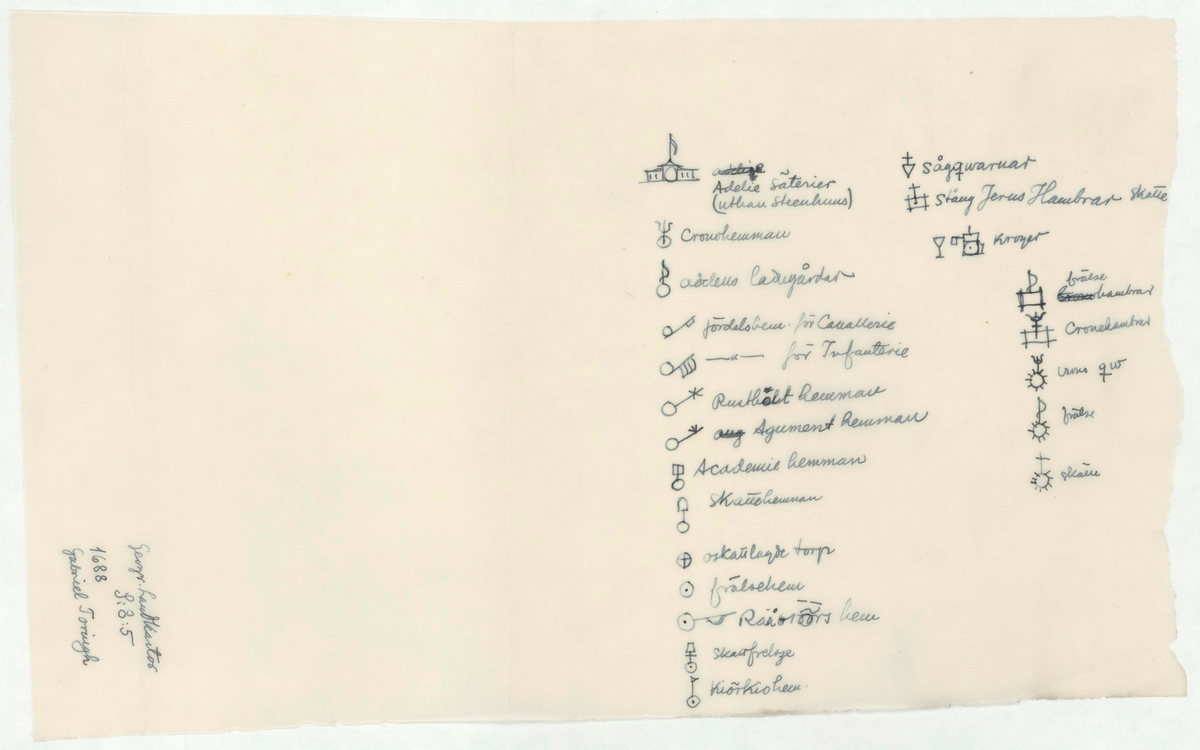 Adelie Säterier
(uthan Steenhuus)
Cronohemman
adelens ladugårdar
fördelshem. för Cavallerie
—"— för Infanterie
Rusthålt hemman
Agument hemman
Academie hemman
Skattehemman
oskattlagde torp
frälsehem
Råå o röörs hem
skattfrelse
Kiörkiohem.
Sågqwarnar
Stång Jerns Hambrar Skatte
Kroger
frälse
hambrar
Cronehambrar
crono qw
frälse
skatte
Geogr. Landtkartor
S:8:5
1688
Gabriel Toringh